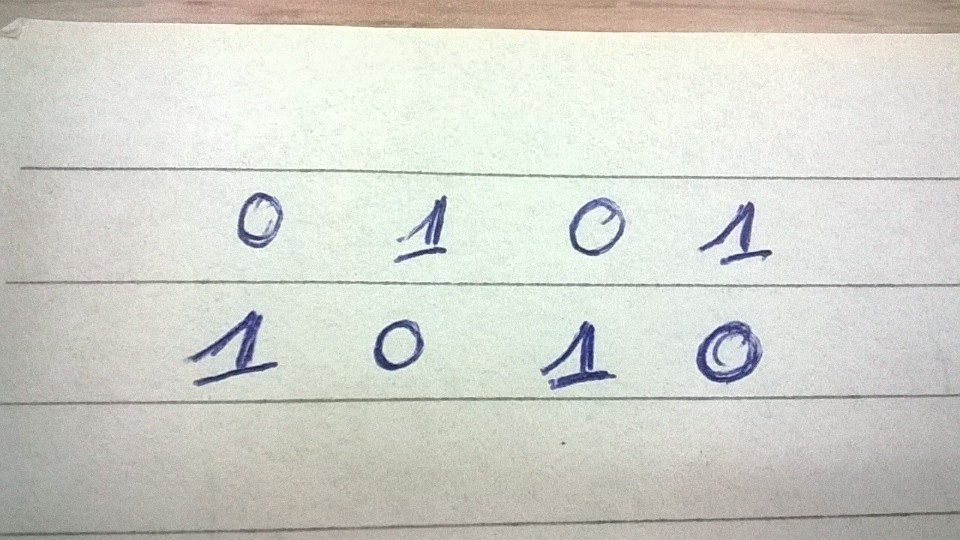 0 1 0 1
1 0 1 0